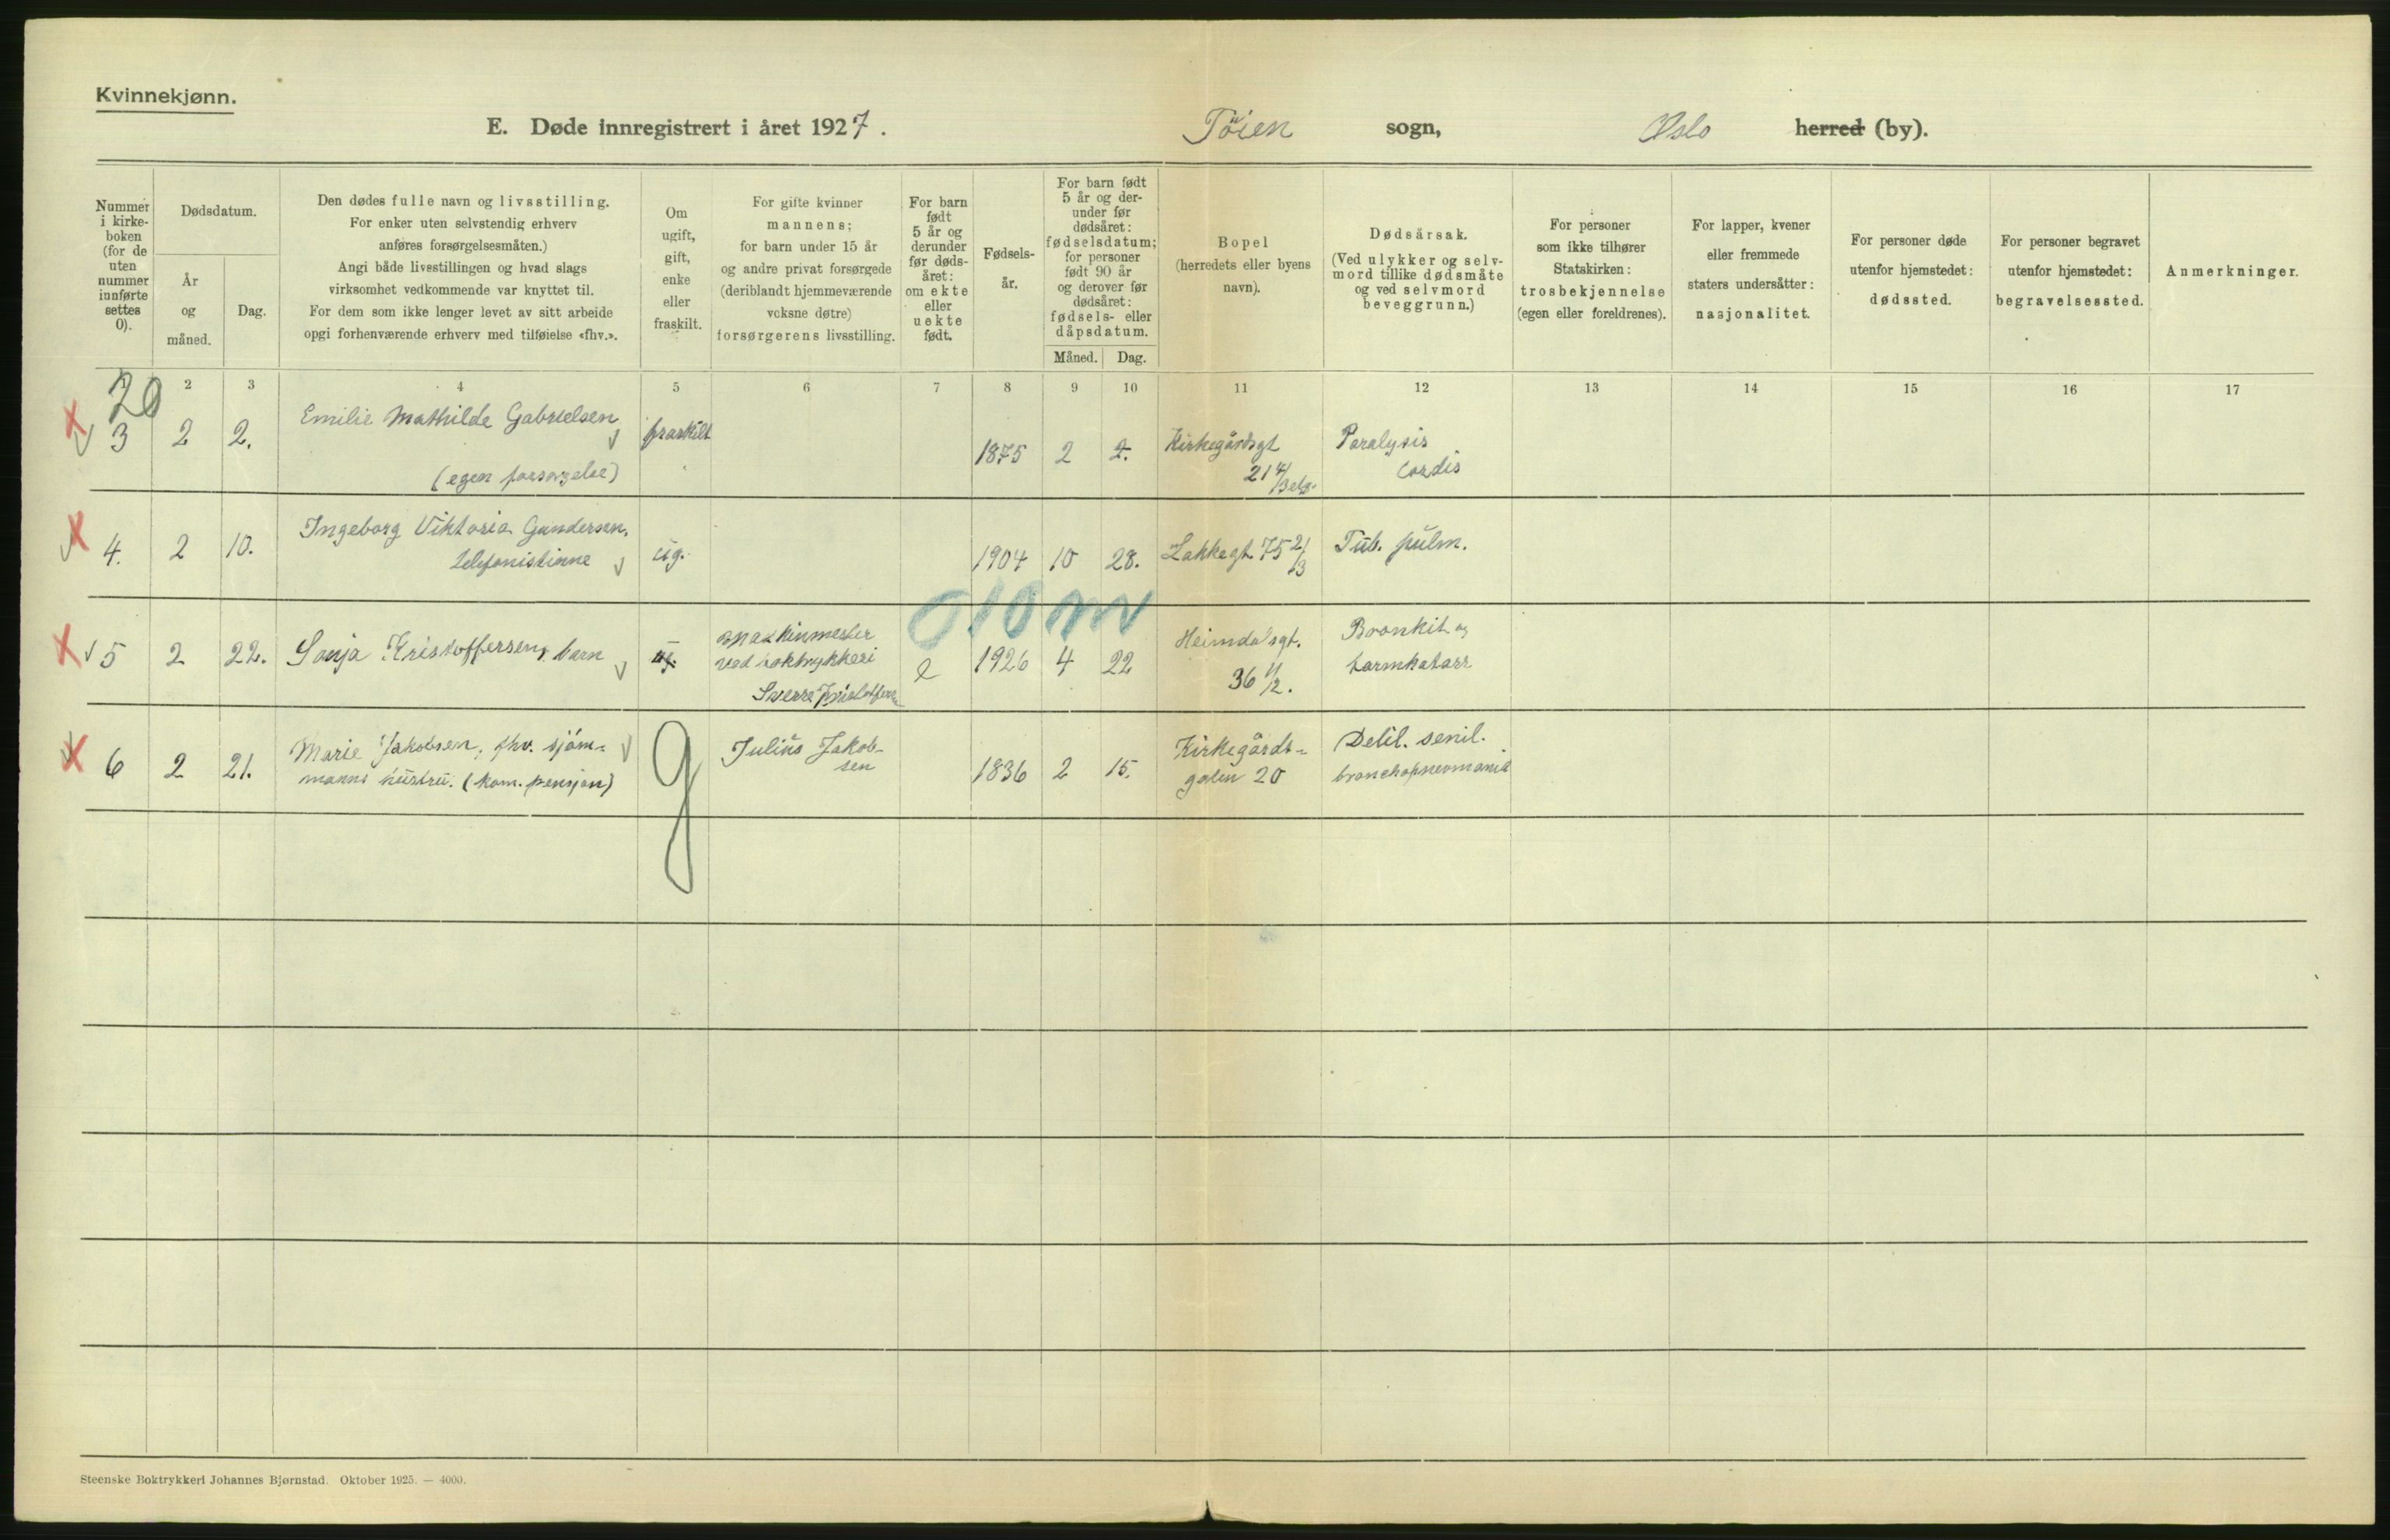 Kvinnekjønn.
E. Døde innregistrert i året 1927. Tøien sogn, Oslo herred (by).
Nummer i kirke-boken (for de uten nummer innførte settes 0).
Dødsdatum.
År og måned.
Dag.
Den dødes fulle navn og livsstilling.
For enker uten selvstendig erhverv
anføres forsørgelsesmåten.)
Angi både livsstillingen og hvad slags
virksomhet vedkommende var knyttet til.
For dem som ikke lenger levet av sitt arbeide
opgi forhenværende erhverv med tilføielse «fhv.».
Om ugift, gift, enke eller fraskilt.
For gifte kvinner
mannens;
for barn under 15 år
og andre privat forsørgede
(deriblandt hjemmeværende
voksne døtre)
forsørgerens livsstilling.
For barn født 5 år og derunder før døds-året: om ekte eller uekte født.
Fødsels-år.
For barn født 5 år og der-under før dødsåret: fødselsdatum; for personer født 90 år og derover før dødsåret: fødsels- eller dåpsdatum.
Måned. Dag.
Bopel
(herredets eller byens
navn).
Dødsårsak.
(Ved ulykker og selv-
mord tillike dødsmåte
og ved selvmord
beveggrunn.)
For personer
som ikke tilhører
Statskirken:
trosbekjennelse
(egen eller foreldrenes).
For lapper, kvener
eller fremmede
staters undersåtter:
nasjonalitet.
For personer døde
utenfor hjemstedet:
dødssted.
For personer begravet
utenfor hjemstedet:
begravelsessted.
Anmerkninger.
2 3 4 5 6 7 8 9 10 11 12 13 14 15 16 17
20
3 2 2. Emilie Mathilde Gabrielsen fraskilt 1875 2 2. Kirkegårdsgt Paralysis
(egen forsørgelse) 21 4/3 elg. Cordis
4. 2 10. Ingeborg Viktoria Gundersen,
telefonistinne ug. 1904 10 28. Lakkegt 75 2/3 Tub. pulm.
010 m
5 2 22. Sonja Kristoffersen, barn ug. maskinmester
ved boktrykkeri
Sverre Kristoffersen e 1926 4 22 Heimdalsgt. 36 1/2. Bronkit og
tarmkatarr
6 2 21. Marie Jakobsen, fhv. sjöm-
manns hustru. (kom. pensjon) g Julius Jakob-
sen 1836 2 15. Kirkegårds-
gaten 20 Debil. senil.
bronchopneumonia
Steenske Boktrykkeri Johannes Bjørnstad. Oktober 1925. — 4000.